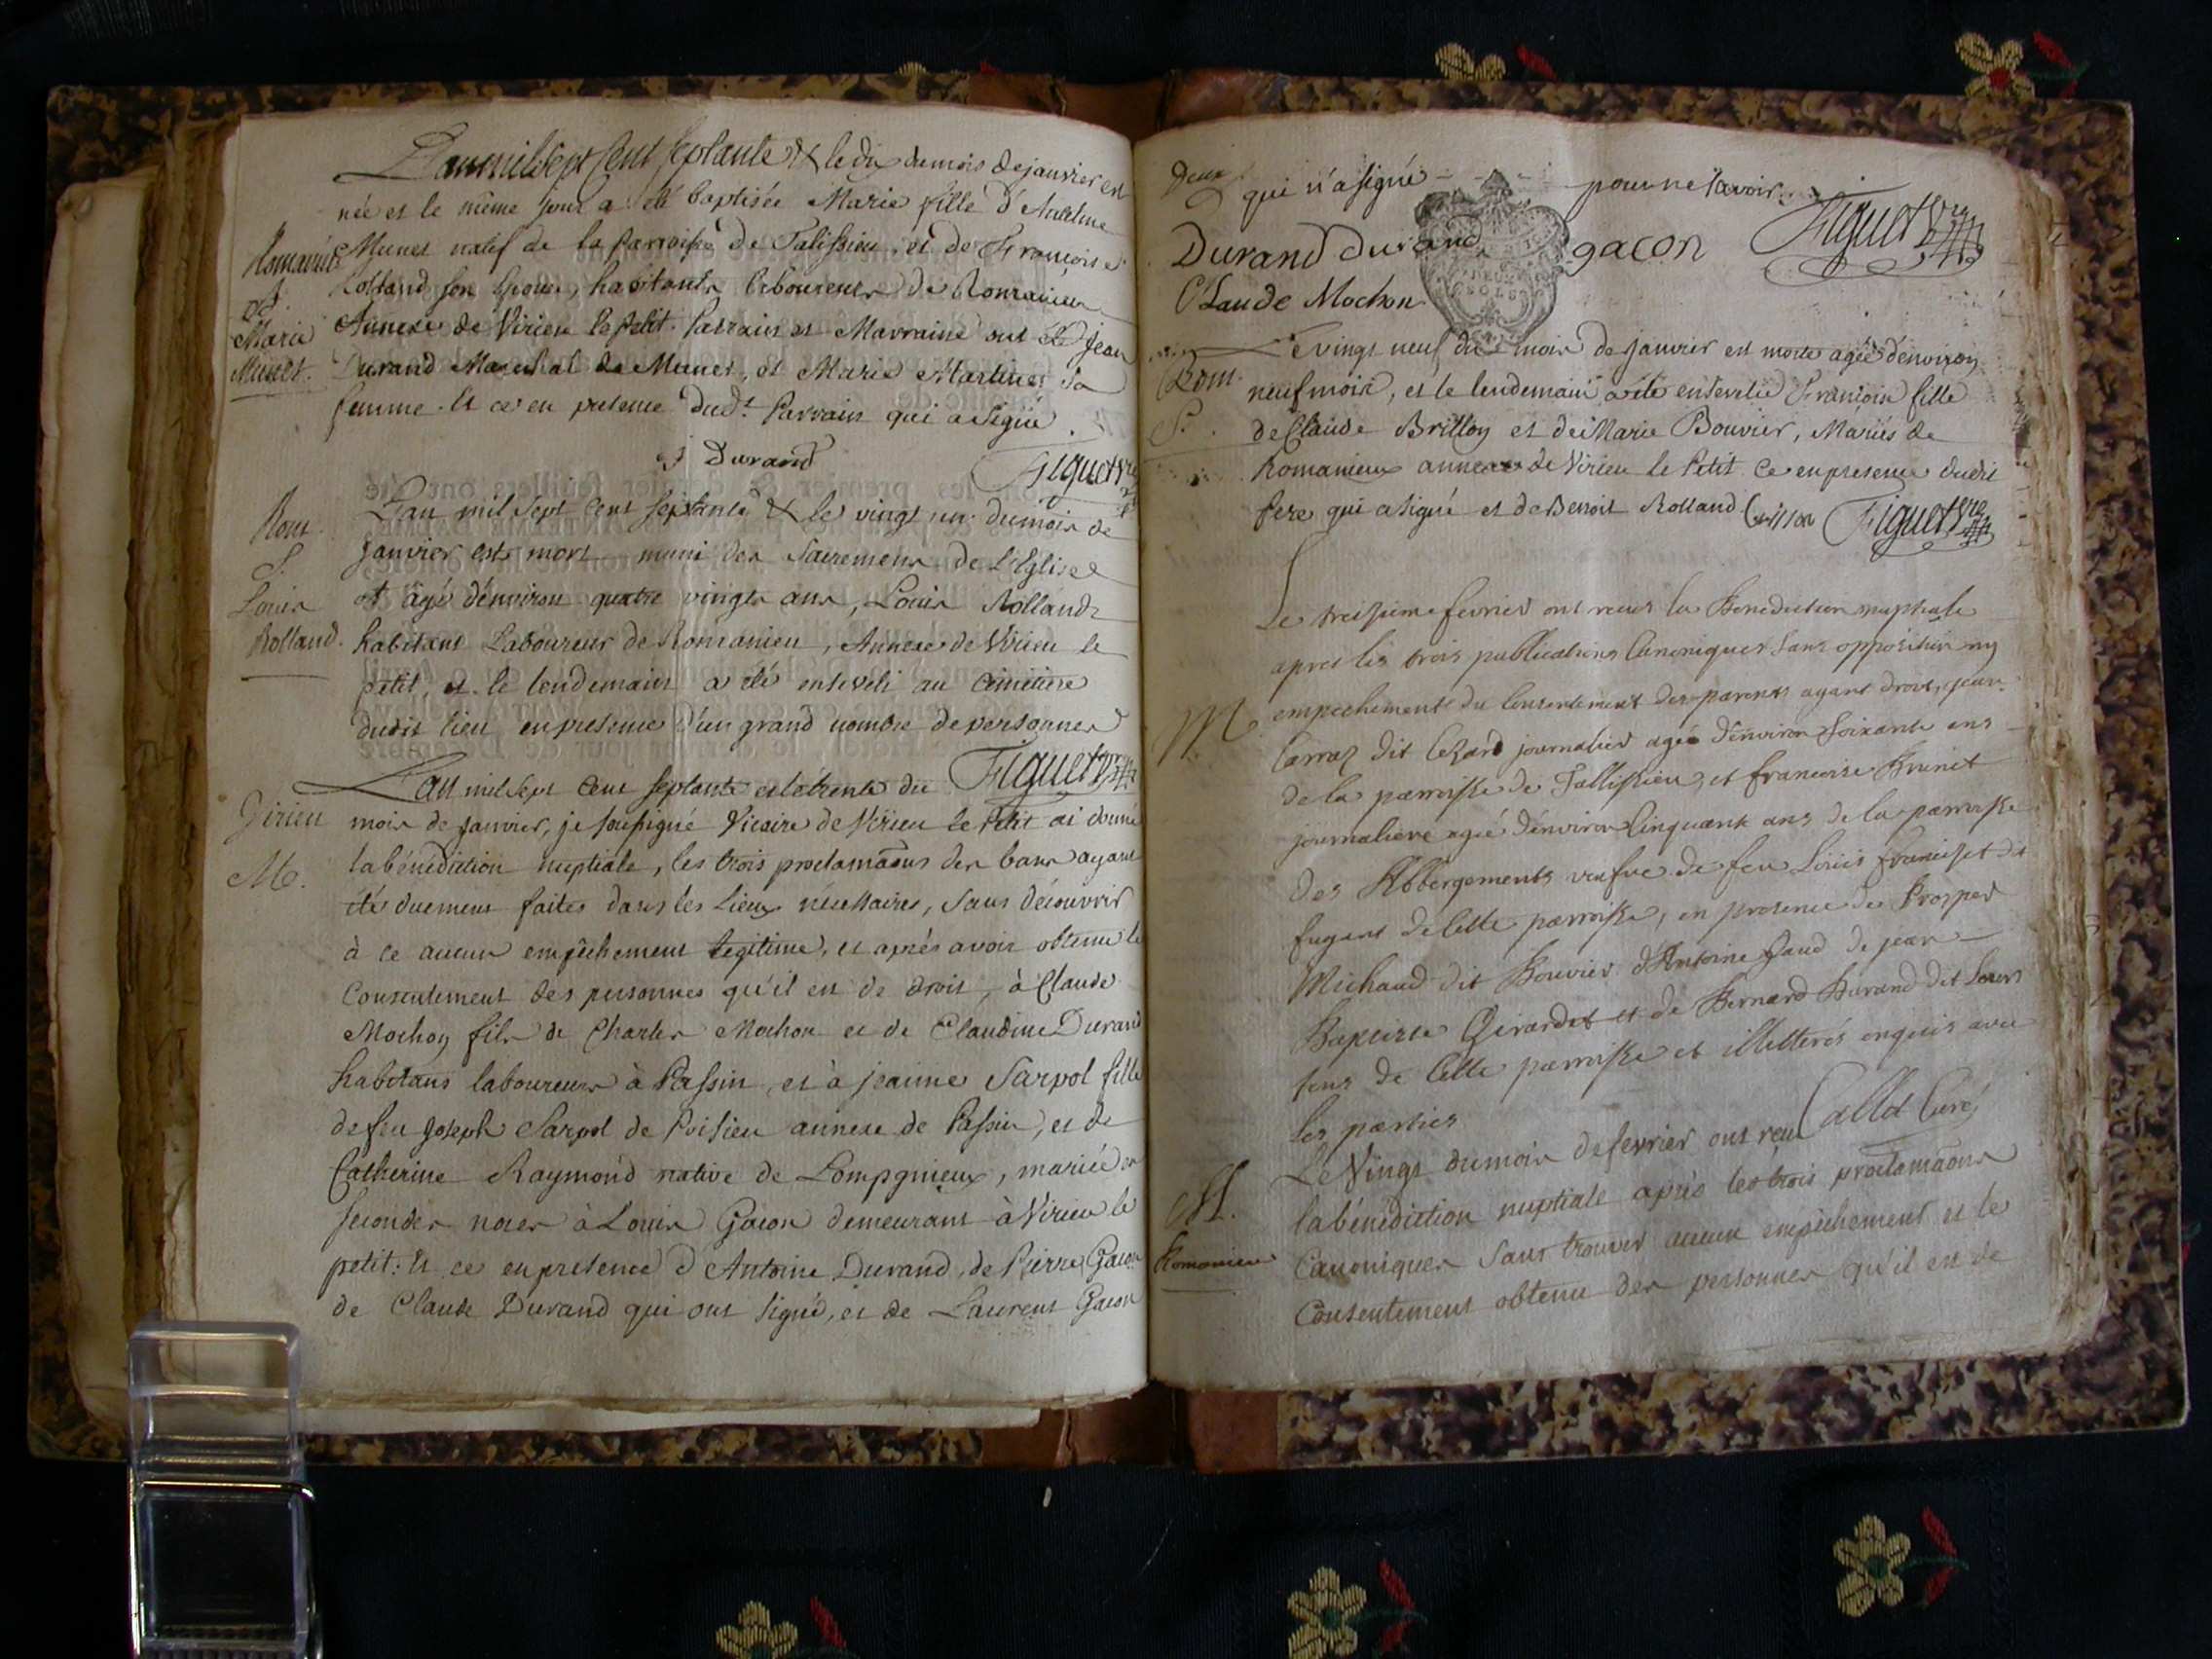 L'an mil sept cent septante & le dix du mois de janvier est
née et le même jour a été baptisée Marie fille d'Anteline
Munet natif de la parroisse de Talissieu, et de Françoise
Rolland son Epouse, habitants laboureurs de Romanieu
Annexe de Virieu le petit. Parrain et Marraine ont été Jean
Durand Marechal de Munet, et Marie Martinet sa
femme. Et ce en presence dud.t Parrain qui a signé.
Romanieu
B.
Marie
Munet.
j Durand
Figuet vre
L'an mil sept cent septante & le vingt un du mois de
janvier est mort muni des Sacremens de l'Eglise
et âgé d'environ quatre vingts ans, Louis Rolland
habitant Laboureur de Romanieu, Annexe de Virieu le
petit, et le lendemain a été enseveli au cimetière
dudit lieu en presence d'un grand nombre de personnes
Rom.
S.
Louis
Rolland.
Figuet vre
L'an mil sept cent septante et le trente du
mois de janvier, je soussigné Vicaire de Virieu le Petit ai donné
la bénédiction nuptiale, les trois proclamaons des bans ayant
été duement faites dans les lieux nécessaires, sans découvrir
à ce aucun empêchement legitime, et après avoir obtenu le
Consentement des personnes qu'il est de droit, à Claude
Mochon fils de Charles Mochon et de Claudine Durand
habitans laboureurs à Passin, et à jeanne Sarpol fille
de feu Joseph Sarpol de Poisieu annexe de Passin, et de
Catherine Raymond native de Lompgnieux, mariée en
secondes noces à Louis Gacon demeurant à Virieu le
petit: Et ce en presence d'Antoine Durand, de Pierre Gacon
de Claude Durand qui ont signé, et de Laurent Gacon
Virieu
M.
Deux
qui n'a signé pour ne savoir.
Durand Durand gacon Figuet vre
Claude Mochon
Le vingt neuf du mois de janvier est morte agée d'environ
neuf mois, et le lendemain a été ensevelie Françoise fille
de Claude Brillon et de Marie Bouvier, Mariés de
Romanieux annexe de Virieu le Petit. Ce en presence dudit
Pere qui a signé et de Benoit Rolland. Brillon Figuet vre
Rom.
S.
Le treisieme fevrier ont receu la Benediction nuptiale
apres les trois publications Canoniques sans opposition ny
empechement du Consentement des parents ayant droit, jean
Carraz dit lezard journalier agé d'environ soixante ans
de la parroisse de Tallissieu, et francoise Brunet
journaliere agée d'environ Cinquante ans de la parroisse
des Abbergements veufve de feu Loüis francillet dit
fugant de Cette parroisse, en presence de Prosper
Michaud dit Bouvier d'Antoine Gaud de jean
Baptiste Girardet et de Bernard Burand dit
tous de Cette parroisse et illetterés enquis avec
les parties
Callot Curé
M.
Le Vingt du mois de fevrier ont reçu
la bénédiction nuptiale après les trois proclamaons
Canoniques sans trouver aucun empêchement et le
Consentement obtenu des personnes qu'il est de
M.
Romanieu